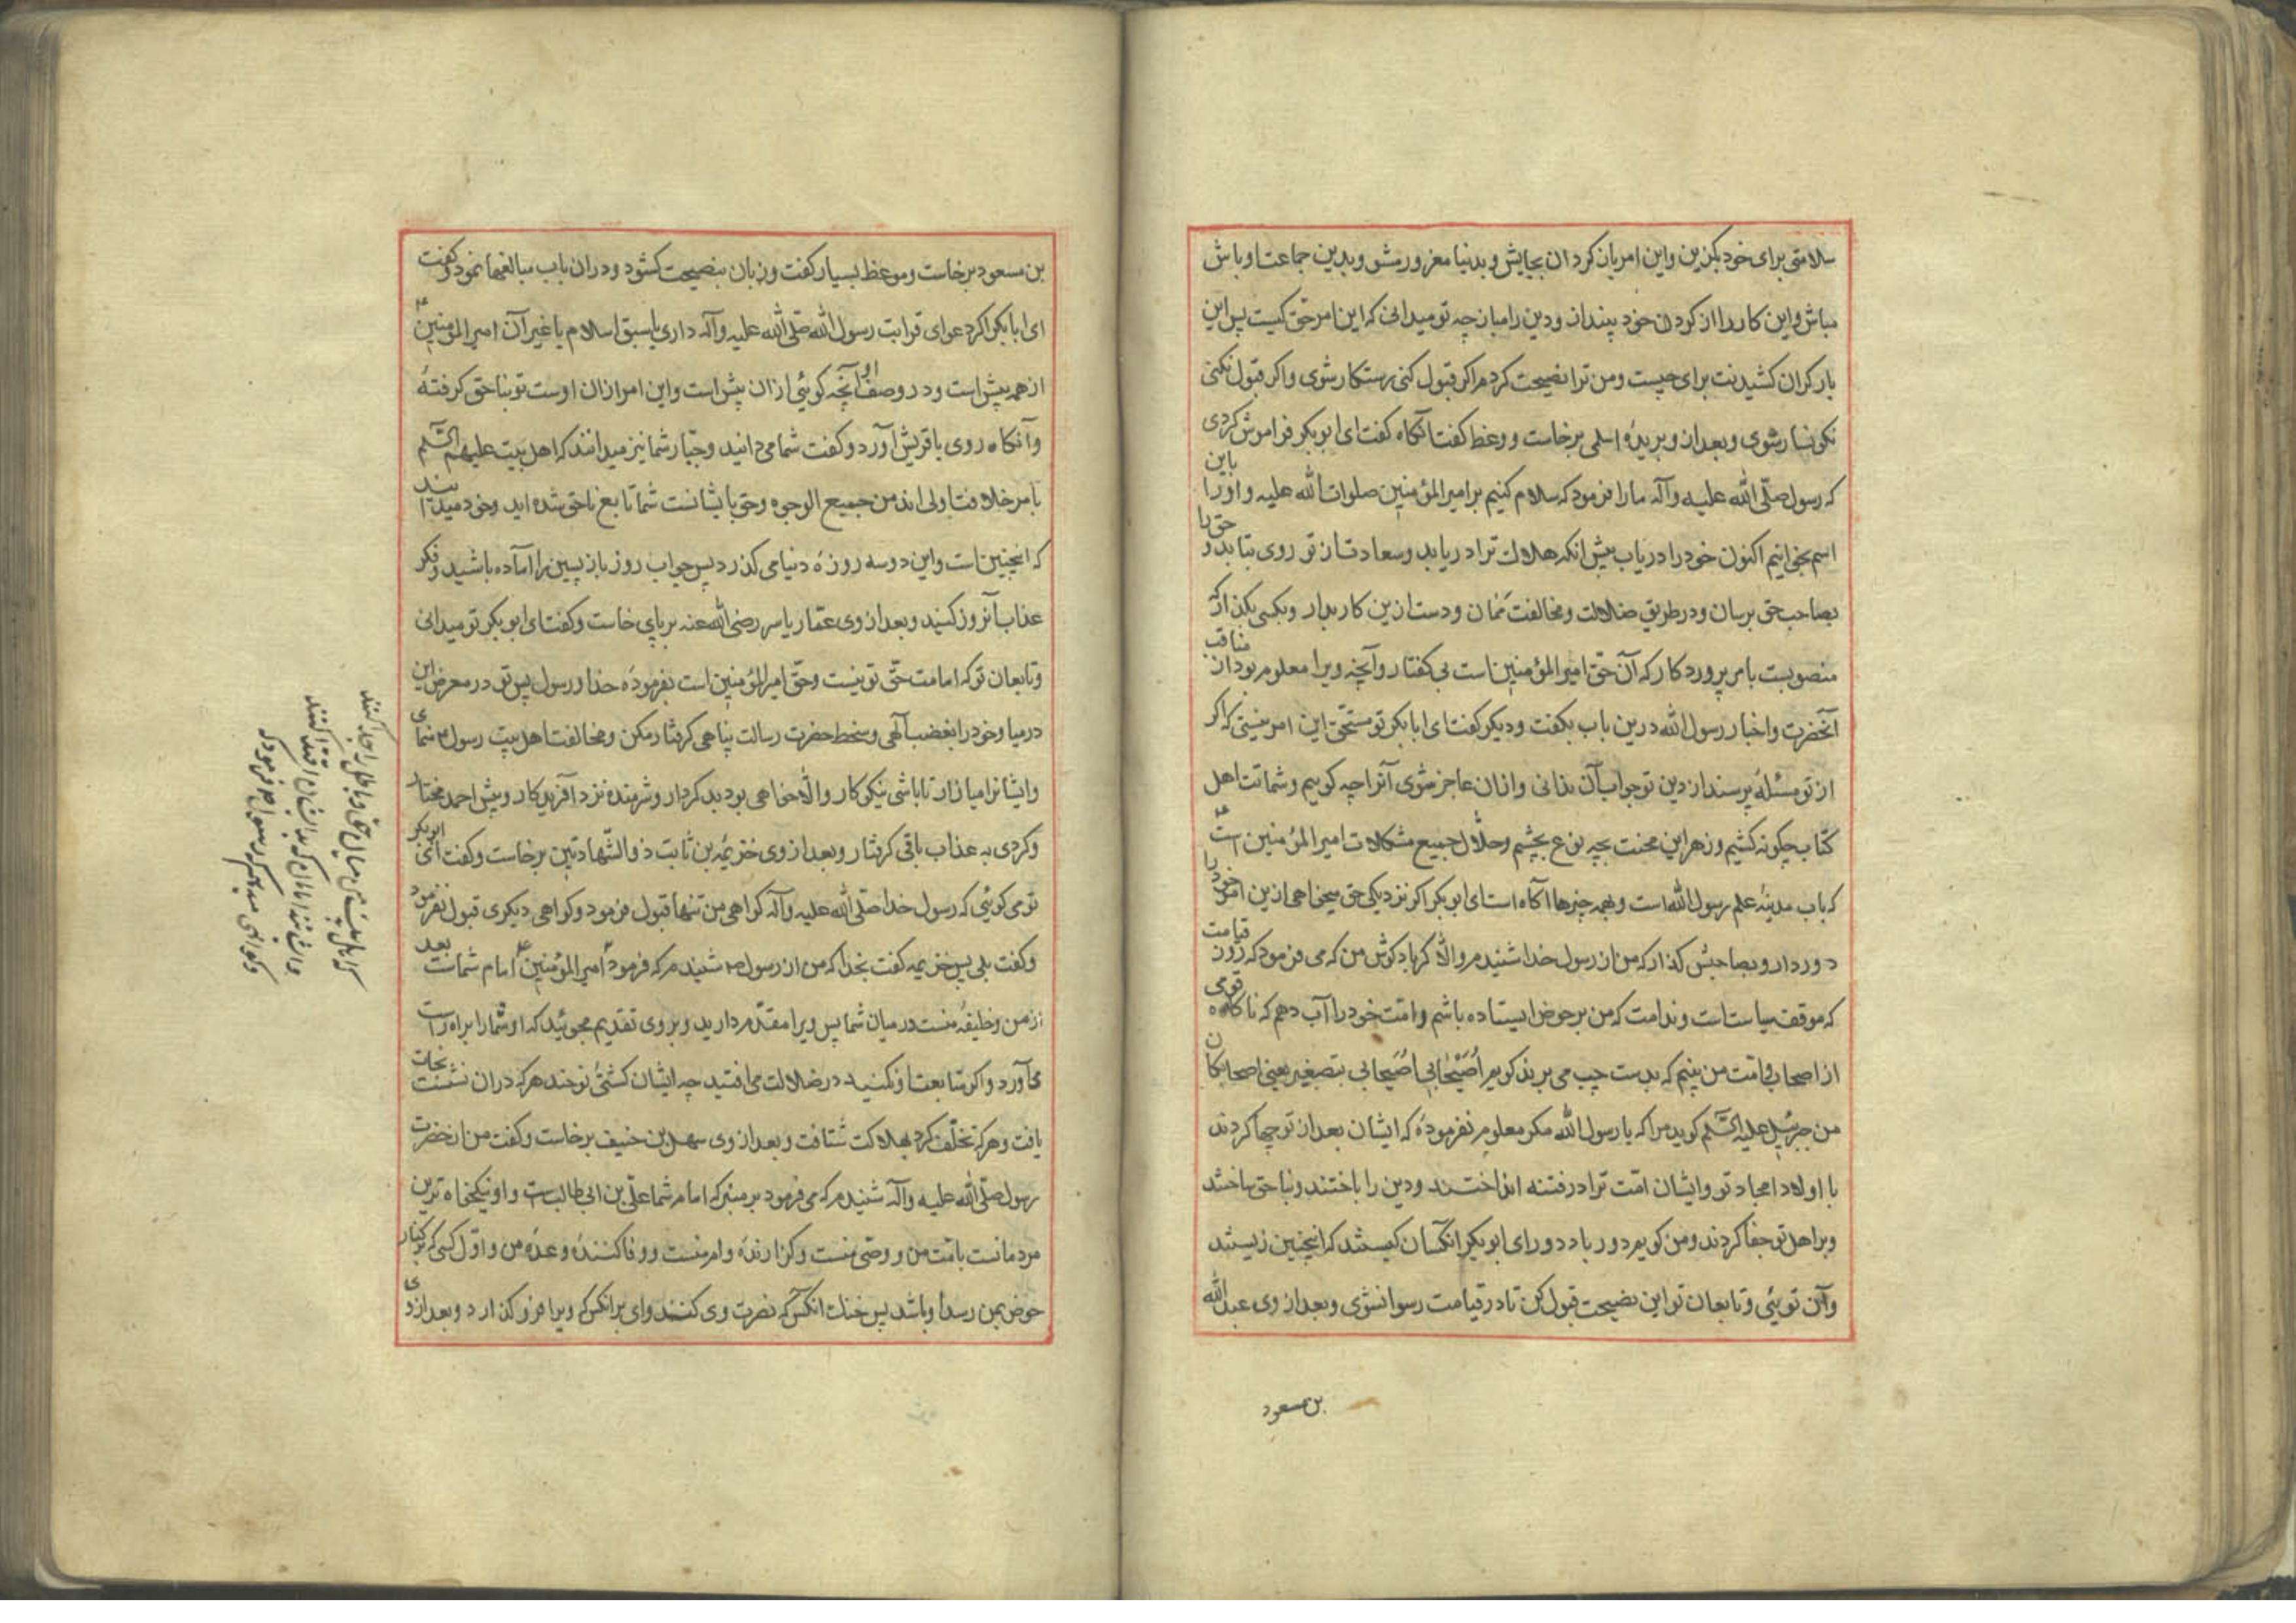 سلامتی برای خود بکزین واین امر یان کردان بجایش و بدنیا مغرور مشو وبدین جماعت اوباش
مباش واین کار را از کردن خود بینداز ودین را میازچه تو میدانی که این امر حق کیست پس این
بار کران کشیدنت برای چیست ومن ترا نصیحت کردم اکر قبول کنی رستکار شوی واکر قبول نکنی
نکونسار شوی وبعد ازو بریدهٔ اسلمی برخاست ووعظ کفت آنکاه کفت ای ابوبکر فراموش کردی
که رسول صلّی الله علیه وآله مارا فرمود که سلام کنیم بر امیر المؤمنین صلوات الله علیه واورا باین
اسم بخوانیم اکنون خود را دریاب پیش انکه هلاکت ترا دریابد وسعادت از تو روی بتابد و حق را
بصاحب حق برسان ودر طریق ضلالت ومخالفت ممان ودست ازین کار بدار وبکسی بکذار که
منصوبست بامر پروردکار که آن حقّ امیر المؤمنین است بی کفتار وآنچه ویرا معلوم بود از مناقب
آنحضرت واخبار رسول الله درین باب بکفت ودیکر کفت ای ابابکر تو مستحقّ این امر نیستی که اکر
از تو مسئلهٔ پرسند از دین تو جواب آن ندانی وازان عاجز شوی آنرا چه کوییم وشماتت اهل
کتاب چکونه کشیم وزهر این محنت بچه نوع بچشیم وحلّال جمیع مشکلات امیر المؤمنین است ع
که باب مدینهٔ علم رسول الله است وبهمه چیزها آکاه است ای ابوبکر اکر نزدیکی حق میخواهی ازین امر خود را
دور دار وبصاحبش کذار که من از رسول خدا شنیدم والّا کر باد کوش من که می فرمود که روز قیامت
که موقف سیاست است وندامت که من بر حوض ایستاده باشم وامّت خود را آب دهم که ناکاه قومی
از اصحاب وامّت من بینم که بدست چپ می برند کویم اُصَیْحَابی اُصَیحابی بتصغیر یعنی اصحابکان
من جبرئیل علیه السّلم کوید مرا که یا رسول الله مکر معلوم نفرمودهٔ که ایشان بعد از تو چها کردند
با اولاد امجاد تو وایشان امّت ترا در فتنه انداختند ودین را باختند وبناحق ساختند
وبر اهل تو جفا کردند ومن کویم دور باد دور ای ابوبکر انکسان کیستند که اینچنین زیستند
وآن توئی وتابعان تو این نصیحت قبول کن تا در قیامت رسوا نشوی وبعد از وی عبد الله
بن مسعود
بن مسعود برخاست وموعظ بسیار کفت وزبان بنصیحت کشود ودران باب مبالغها نمود وکفت
ای ابابکر اکر دعوای قرابت رسول الله صلّی الله علیه وآله داری یا سبق اسلام یا غیر آن امیر المؤمنین ع
از همه پیش است ودر وصف او آنچه کوئی ازان پیش است واین امر ازان اوست تو بناحق کرفتهٔ
وآنکاه روی با قریش آورد وکفت شما می دانید وخیار شما نیز میدانند که اهل بیت علیهم السّلم
بامر خلافت اولی اند من جمیع الوجوه وحق با یشانست شما تابع ناحق شده اید وخود میدانید
که اینچنین است واین دو سه روزهٔ دنیا می کذرد پس جواب روز بازپسین را آماده باشید وفکر
عذاب آنروز کنید وبعد از وی عمّار یاسر رضی الله عنه بر پای خاست وکفت ای ابوبکر تو میدانی
وتابعان تو که امامت حقّ تو نیست وحقّ امیر المؤمنین است بفرمودهٔ خدا ورسول پس تو در معرض این
درمیا وخود را بغضب آلهی وسخط حضرت رسالت پناهی کرفتار مکن ومخالفت اهل بیت رسول ص منمای
وایشانرا میازار تا باشی نیکوکار والّا خواهی بود بدکردار وشرمنده نزد آفریدکار وپیش احمد مختار
وکردی به عذاب باقی کرفتار وبعد از وی خزیمه بن ثابت ذو الشّهادتین برخاست وکفت ای ابوبکر
تو می کوئی که رسول خدا صلّی الله علیه وآله کواهی من تنها قبول فرمود وکواهی دیکری قبول نفرمود
وکفت بلی پس خزیمه کفت بخدا که من از رسول ص شنیدم که فرمود امیر المؤمنین ع امام شماست بعد
از من وخلیفهٔ منست در میان شما پس ویرا مقدّم دارید وبر وی تقدیم مجوئید که او شما را براه راست
می آورد واکر متابعت او نکنید در ضلالت می افتید چه ایشان کشتئ نوحند هرکه دران نشست نجات
یافت وهرکه تخلّف کرد بهلاکت شتافت وبعد از وی سهل بن حنیف برخاست وکفت من از حضرت
رسول صلّی الله علیه وآله شنیدم که می فرمود بر منبر که امام شما علی بن ابی طالب است واو نیکخواه ترین
مردمانست بامّت من ووصّی منست وکزارندهٔ وام منست ووفا کنندهٔ وعدهٔ من واوّل کسی که بر کنار
حوض بمن رسد او باشد پس خنک انکس که نصرت وی کنند وای برانکس که ویرا فرو کذارد وبعد از وی
که اهل بیت من میان حق وباطل را جدا کنند
وایشانند امامان که بدیشان اقتدا کنند